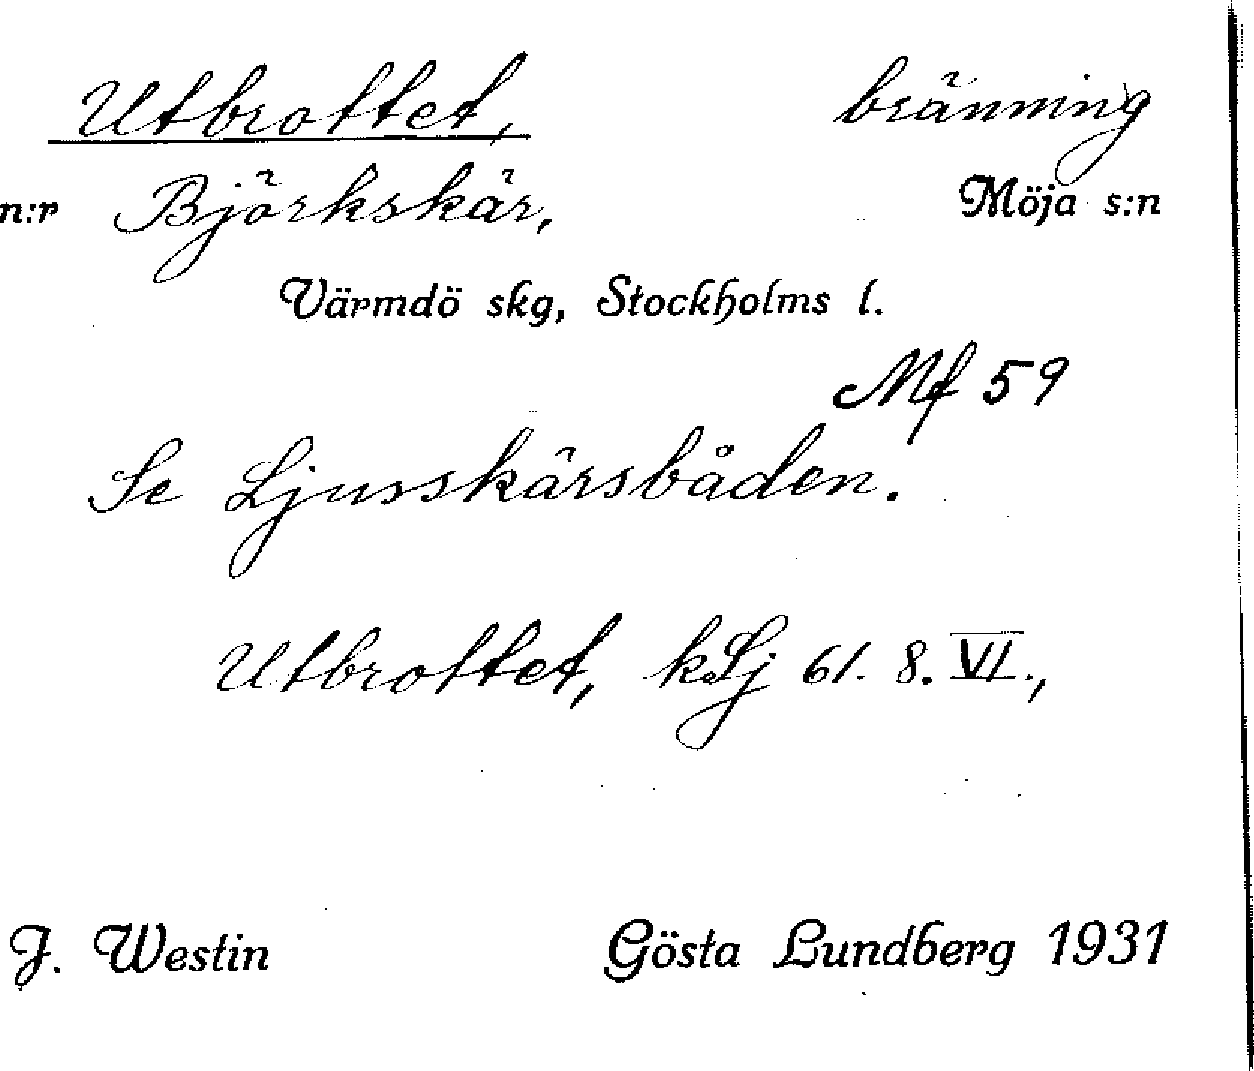 Utbrottet, bränning
n:r Björkskär, Möja s:n
Värmdö skg, Stockholms l.
Mf 59
Se Ljusskärsbåden.
Utbrottet, kLj 61. 8. VI.,
J. Westin Gösta Lundberg 1931